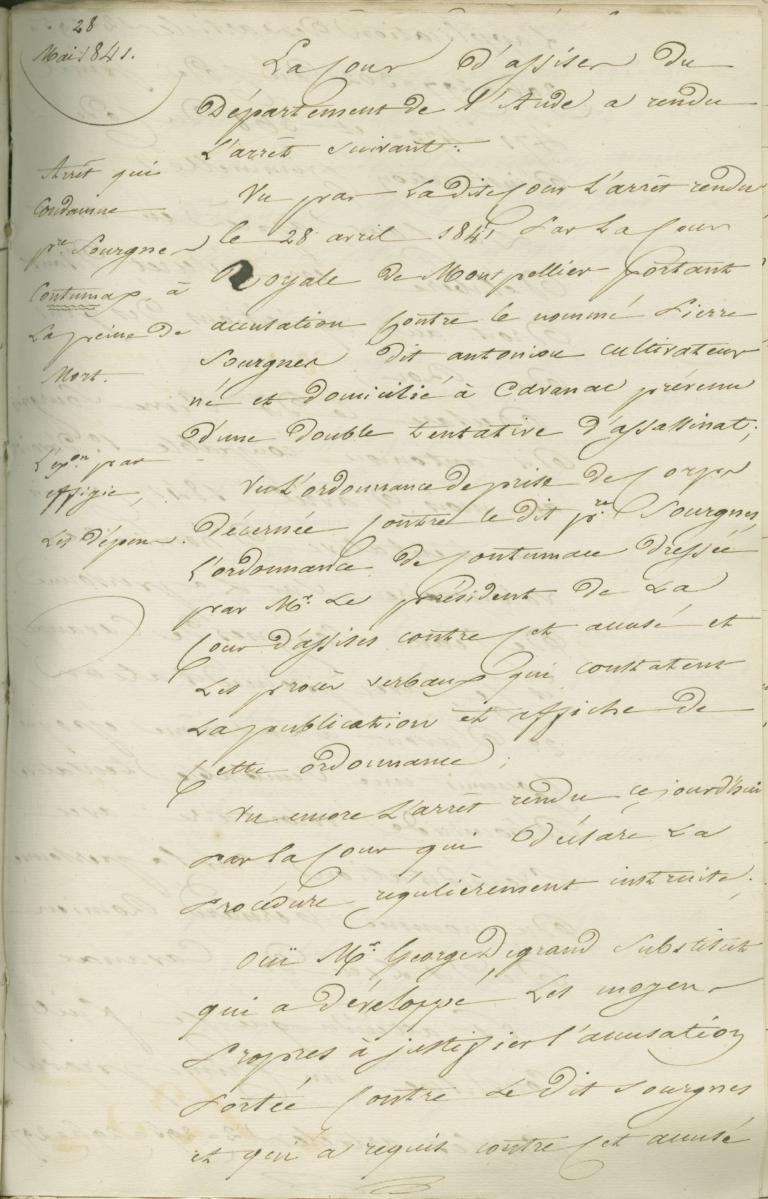 28
Mai 1841.
Arrêt qui
Condamne
pre. Sourgnes
Contumax, à
La peine de
Mort.
L'exon. par
effigie,
Les dépens.
La Cour d'assises du
Département de l'Aude a rendu
L'arrêt suivant:
Vu par La dite Cour L'arrêt rendu
le 28 avril 1841 Par La Cour
Royale de Montpellier portant
accusation Contre le nommé Pierre
Sourgnes dit antoniou cultivateur
né et domicilié à Cavanac prévenu
d'une double tentative d'assassinat;
Vu L'ordonnance de prise de Corps
Décernée Contre le dit pre. Sourgnes,
L'ordonnance de Contumace dressée
par Mr. Le président de La
Cour d'assises contre Cet accusé et
Les procès verbaux qui constatent
La publication et affiche de
Cette ordonnance;
Vu encore L'arrêt rendu cejourd'hui
Par la Cour qui déclare La
Procédure régulièrement instruite;
Ouï Mr. George Degrand Substitut
qui a développé Les moyens
Propres à justifier l'accusation
Portée Contre Le dit Sourgnes
et qui a requis contre Cet accusé